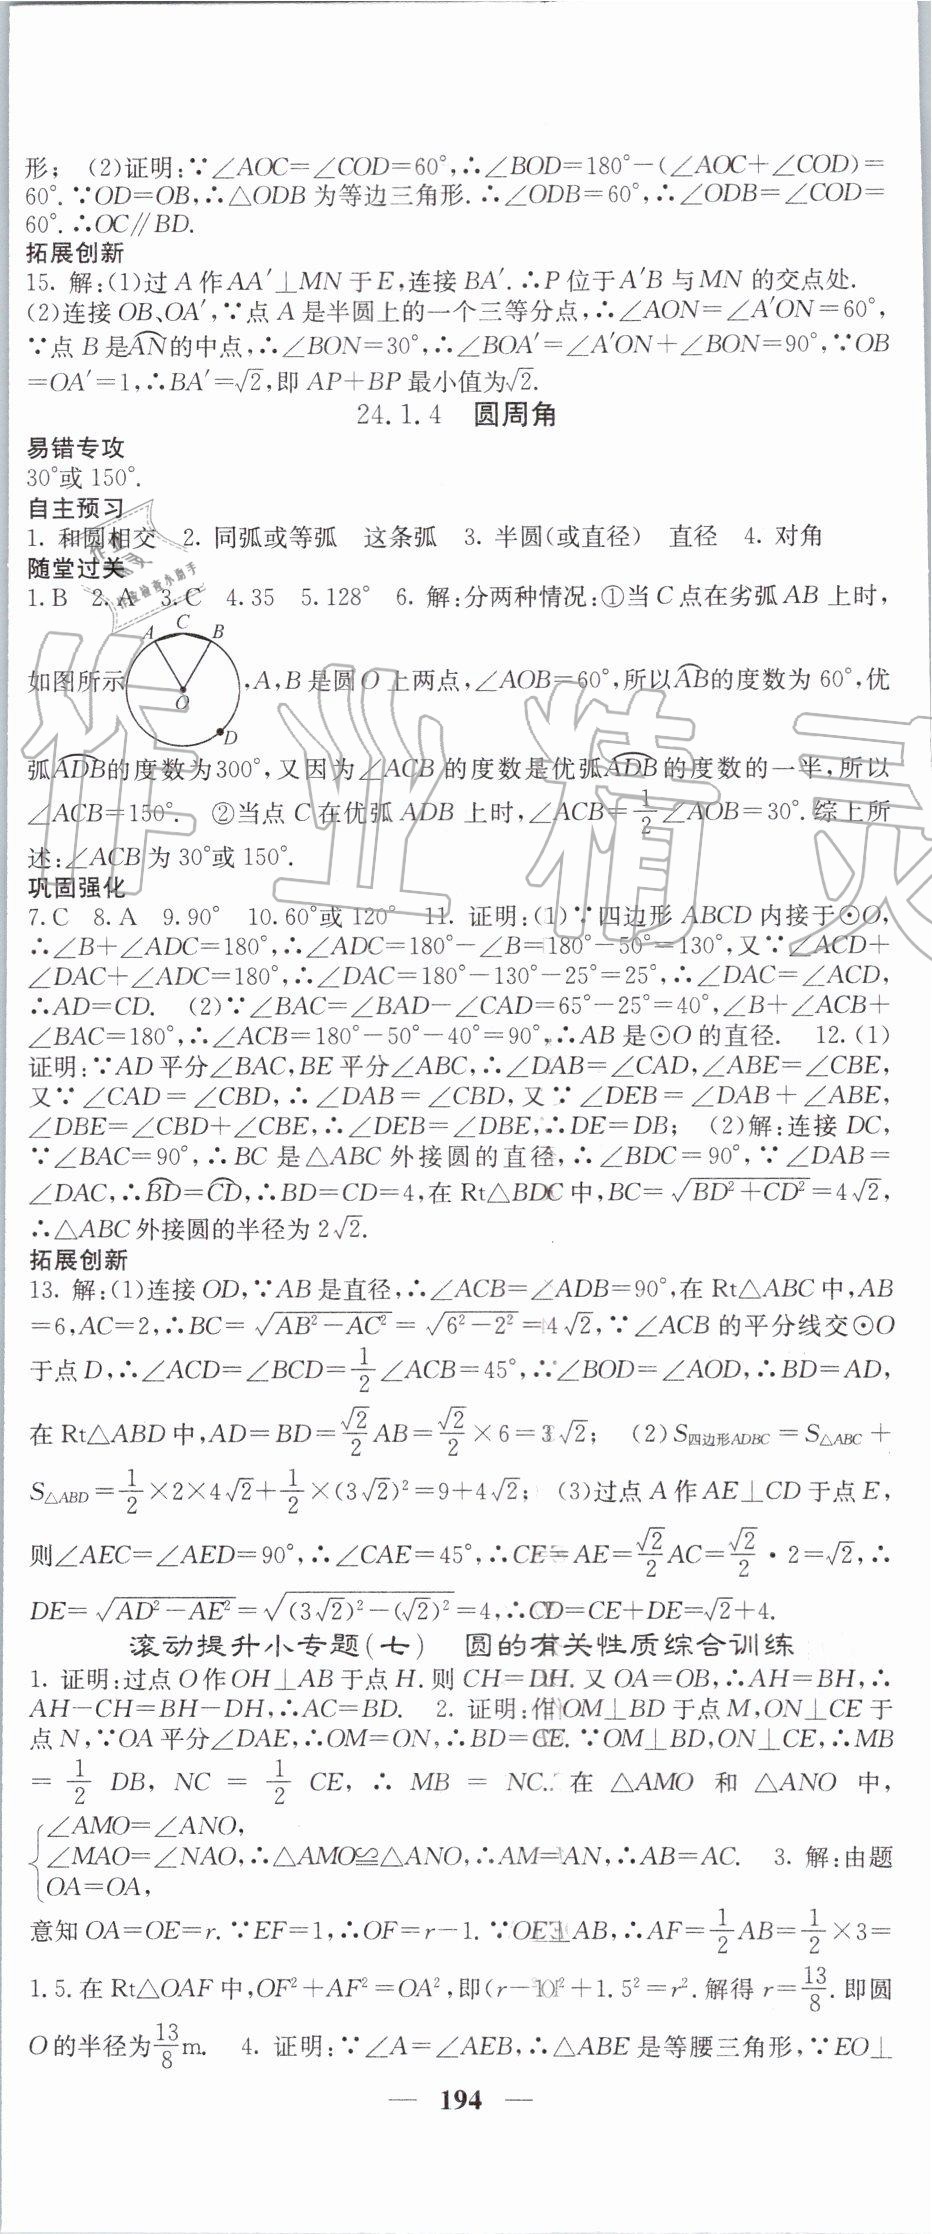 形; (2)证明:∵∠AOC=∠COD=60°,∴∠BOD=180°-(∠AOC+∠COD)=
60°.∵OD=OB,∴△ODB 为等边三角形.∴∠ODB=60°,∴∠ODB=∠COD=
60°.∴OC∥BD.
拓展创新
15. 解:(1)过 A 作 AA′⊥MN 于 E,连接 BA′.∴P 位于 A′B 与 MN 的交点处.
(2)连接 OB、OA′,∵点 A 是半圆上的一个三等分点,∴∠AON=∠A′ON=60°,
∵点 B 是AN的中点,∴∠BON=30°,∴∠BOA′=∠A′ON+∠BON=90°,∵OB
=OA′=1,∴BA′=√2,即 AP+BP 最小值为√2.
24.1.4 圆周角
易错专攻
30°或 150°.
自主预习
1. 和圆相交 2. 同弧或等弧 这条弧 3. 半圆(或直径) 直径 4. 对角
随堂过关
1.B 2.A 3.C 4.35 5.128° 6. 解:分两种情况:①当 C 点在劣弧 AB 上时,
A C B
如图所示 ,A,B 是圆 O 上两点,∠AOB=60°,所以AB的度数为 60°,优
O
D
弧ADB的度数为300°,又因为∠ACB 的度数是优弧ADB的度数的一半,所以
∠ACB=150°. ②当点 C 在优弧 ADB 上时,∠ACB=1/2∠AOB=30°.综上所
述:∠ACB 为 30°或 150°.
巩固强化
7.C 8.A 9.90° 10.60°或 120° 11. 证明:(1)∵四边形 ABCD 内接于⊙O,
∴∠B+∠ADC=180°,∴∠ADC=180°-∠B=180°-50°=130°,又∵∠ACD+
∠DAC+∠ADC=180°,∴∠DAC=180°-130°-25°=25°,∴∠DAC=∠ACD,
∴AD=CD. (2)∵∠BAC=∠BAD-∠CAD=65°-25°=40°,∠B+∠ACB+
∠BAC=180°,∴∠ACB=180°-50°-40°=90°,∴AB 是⊙O 的直径. 12.(1)
证明:∵AD 平分∠BAC,BE 平分∠ABC,∴∠DAB=∠CAD,∠ABE=∠CBE,
又∵∠CAD=∠CBD,∴∠DAB=∠CBD,又∵∠DEB=∠DAB+∠ABE,
∠DBE=∠CBD+∠CBE,∴∠DEB=∠DBE,∴DE=DB; (2)解:连接 DC,
∵∠BAC=90°,∴BC 是△ABC 外接圆的直径,∴∠BDC=90°,∵∠DAB=
∠DAC,∴BD=CD,∴BD=CD=4,在 Rt△BDC 中,BC=√(BD²+CD²)=4√2,
∴△ABC 外接圆的半径为 2√2.
拓展创新
13. 解:(1)连接 OD,∵AB 是直径,∴∠ACB=∠ADB=90°,在 Rt△ABC 中,AB
=6,AC=2,∴BC=√(AB²-AC²)=√(6²-2²)=4√2,∵∠ACB 的平分线交⊙O
于点 D,∴∠ACD=∠BCD=1/2∠ACB=45°,∴∠BOD=∠AOD,∴BD=AD,
在 Rt△ABD 中,AD=BD=√2/2AB=√2/2×6=3√2; (2)S四边形ADBC=S△ABC+
S△ABD=1/2×2×4√2+1/2×(3√2)²=9+4√2; (3)过点 A 作 AE⊥CD 于点 E,
则∠AEC=∠AED=90°,∴∠CAE=45°,∴CE=AE=√2/2AC=√2/2·2=√2,∴
DE=√(AD²-AE²)=√((3√2)²-(√2)²)=4,∴CD=CE+DE=√2+4.
滚动提升小专题(七) 圆的有关性质综合训练
1. 证明:过点 O 作 OH⊥AB 于点 H.则 CH=DH.又 OA=OB,∴AH=BH,∴
AH-CH=BH-DH,∴AC=BD. 2. 证明:作 OM⊥BD 于点 M,ON⊥CE 于
点 N,∵OA 平分∠DAE,∴OM=ON,∴BD=CE.∵OM⊥BD,ON⊥CE,∴MB
=1/2 DB, NC = 1/2 CE, ∴ MB = NC. 在 △AMO 和 △ANO 中,
∠AMO=∠ANO,
∠MAO=∠NAO,∴△AMO≌△ANO,∴AM=AN,∴AB=AC. 3. 解:由题
OA=OA,
意知 OA=OE=r.∵EF=1,∴OF=r-1.∵OE⊥AB,∴AF=1/2AB=1/2×3=
1.5.在 Rt△OAF 中,OF²+AF²=OA²,即(r-1)²+1.5²=r².解得 r=13/8.即圆
O 的半径为13/8m. 4. 证明:∵∠A=∠AEB,∴△ABE 是等腰三角形,∵EO⊥
— 194 —
作业精灵